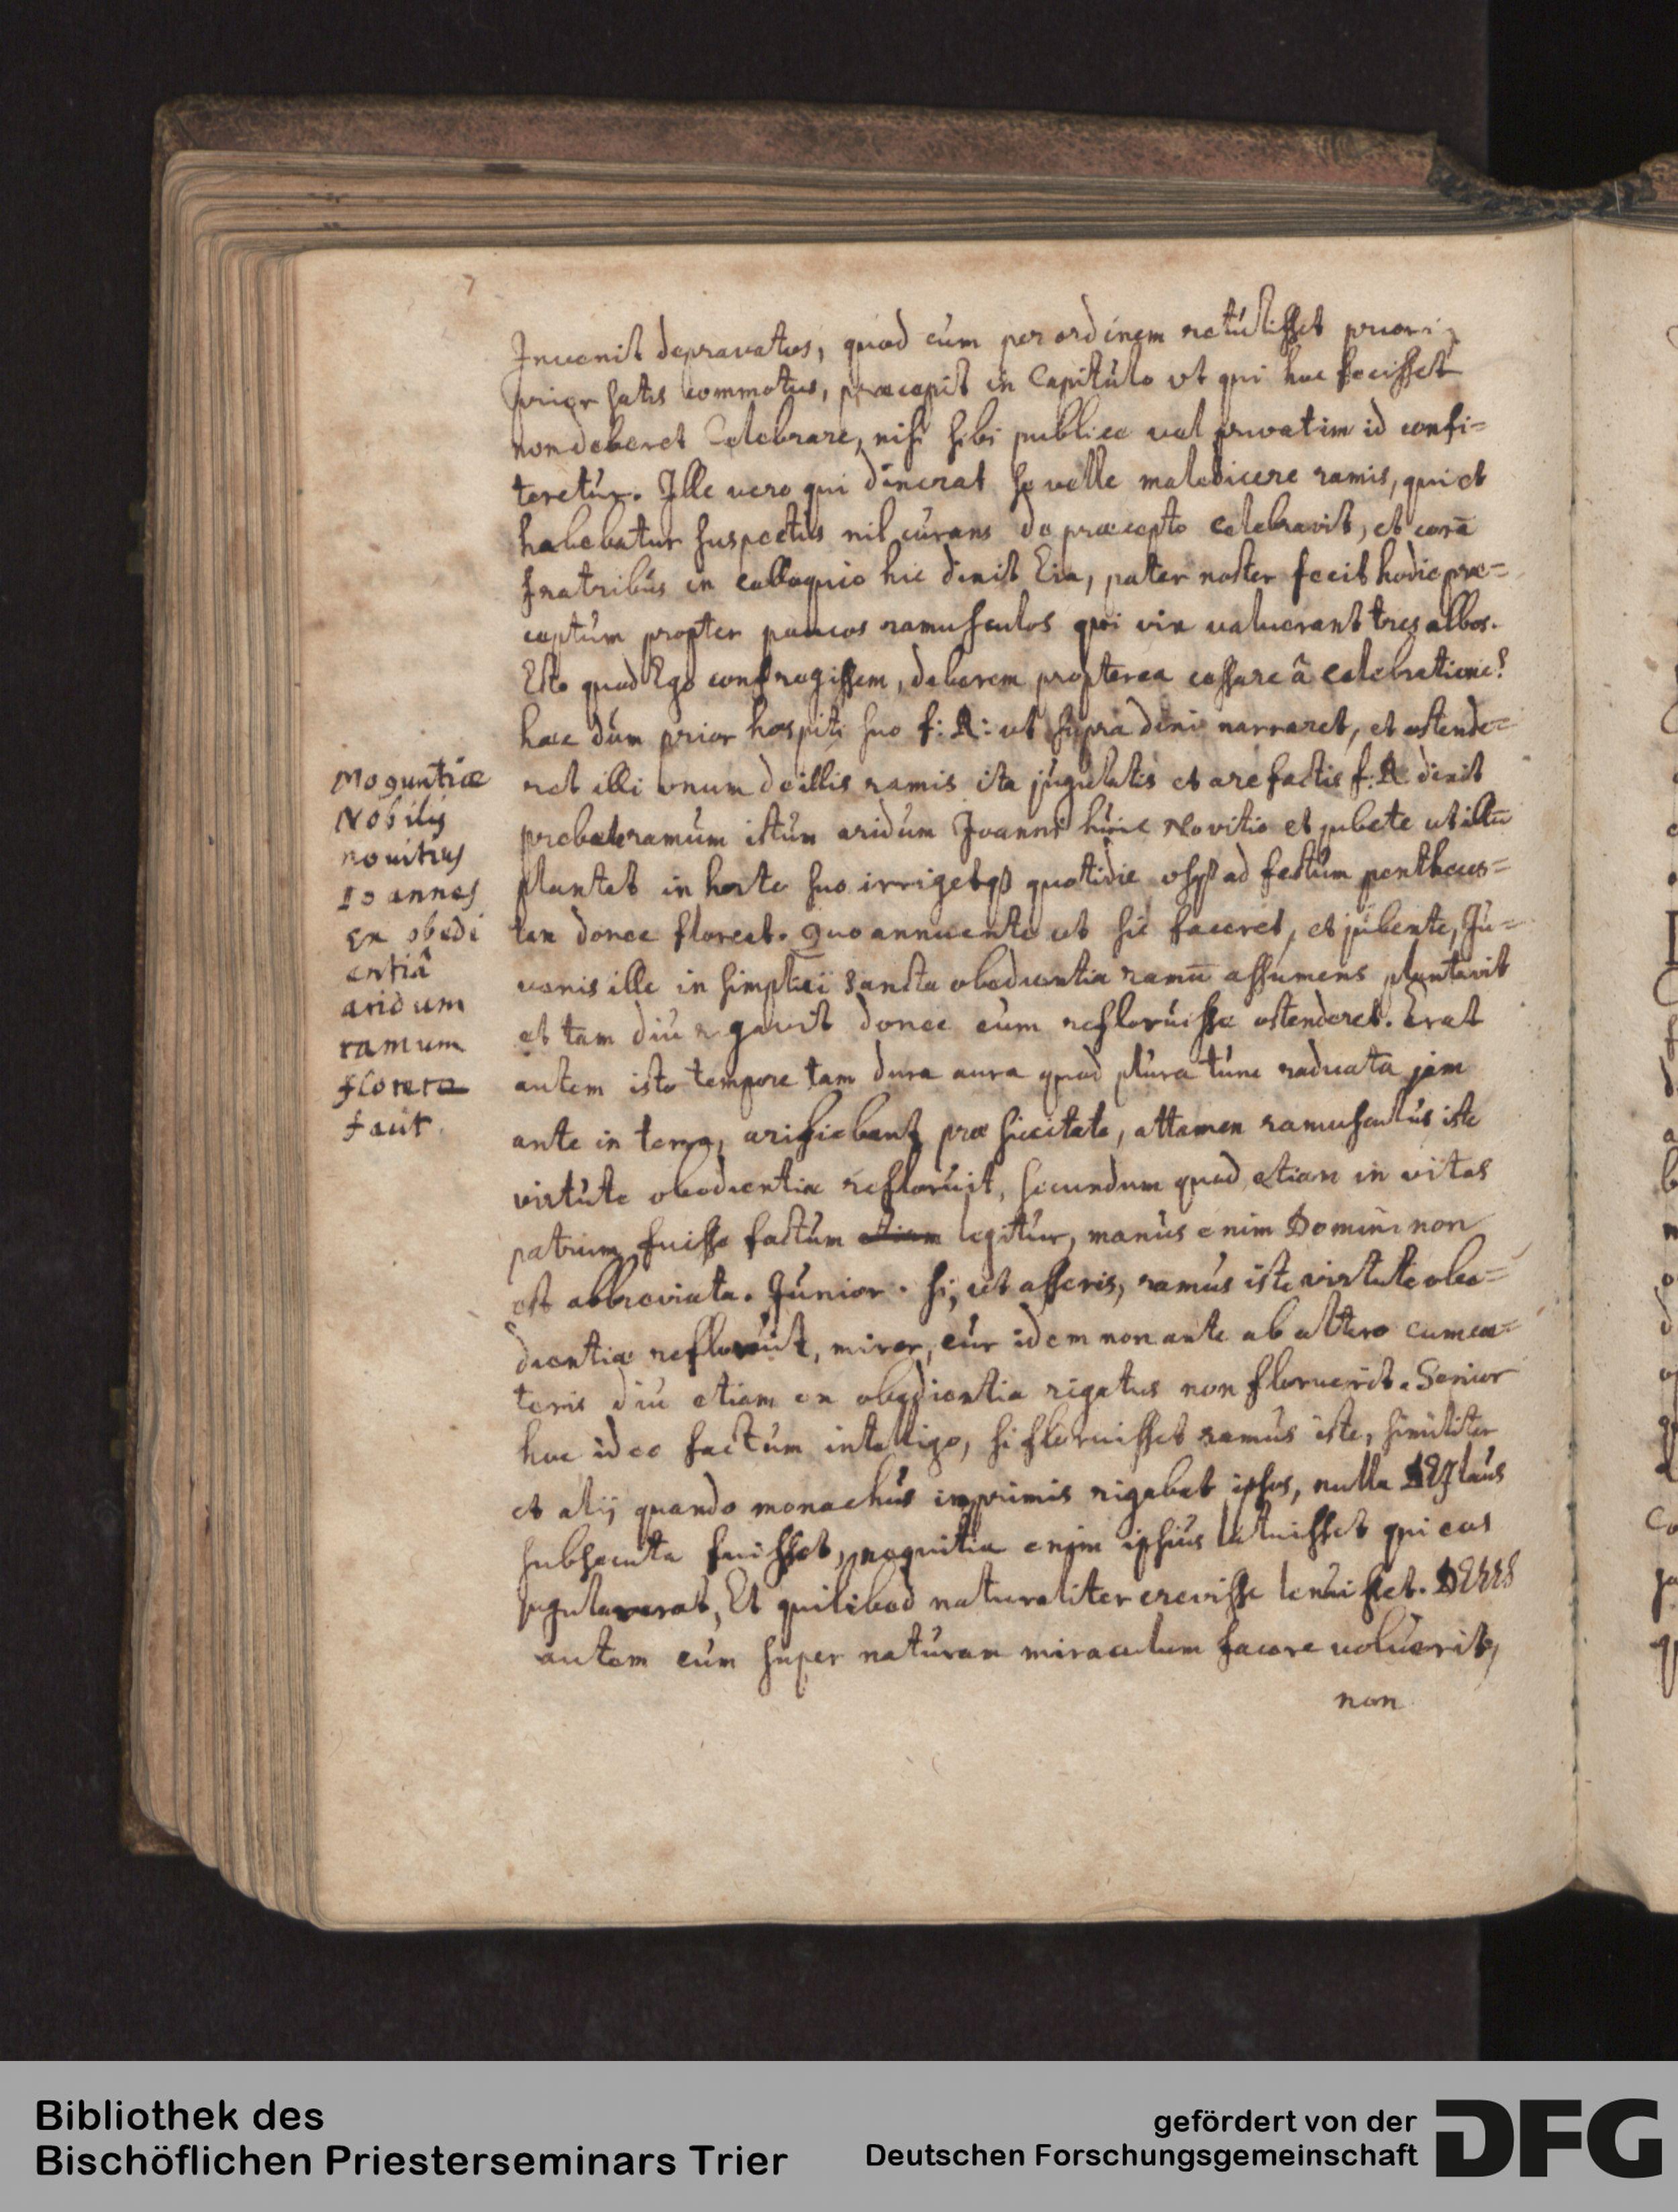 Invenit depravatos, quod cum per ordinem retulisset priori,
prior satis commotus, præcepit in Capitulo vt qui hoc fecisset
non deberet Celebrare, nisi sibi publice vel privatim id confi=
teretur. Ille vero qui dixerat se velle maledicere ramis, qui et
habebatur suspectus nil curans de præcepto celebravit, et corā
fratribus in colloquio hic dixit Eia, pater noster fecit hodie præ=
ceptum propter paucos ramusculos qui vix valuerant tres albos.
Esto quod Ego confregissem, deberem propterea cessare â celebratione?
hæc dum prior hospiti suo f: R: ut supra dixi narraret, et ostende=
ret illi vnum de illis ramis ita jugulatis et arefactis f: R: dixit
ramum istum aridum Joanni huic Novitio et jubete ut illū
plantet in horto suo irrigetqß quotidie vsqß ad festum penthecos=
ten donec floreat. Quo annuente ut sic faceret, et jubente, Ju=
venis ille in simplici sancta obedientia ramū assumens plantavit
et tam diu donec eum refloruisse ostenderet. Erat
autem isto tempore tam dura aura quod plura tunc radicata jam
ante in terra, præ siccitate, attamen ramusculus iste
virtute obedientiæ refloruit, secundum quod etiam in vitas
patrum fuisse factum etiam legitur, manus enim Domini non
est abbreviata. Junior. si, ut asseris, ramus iste virtute obe=
dientiæ refloruit, miror, cur idem non ante ab altero cum cæ=
teris diu etiam ex obedientia rigatus non floruerit. Senior
hoc ideo factum intelligo, si floruisset ramus iste, similiter
et alij quando monachus imprimis rigabat ipsos, nulla laus
subsecuta fuisset, nequitia enim ipsius latuisset qui eos
jugulaverat, Et quilibed naturaliter crevisse
autem cum super naturam miraculum facere voluerit,
non
Moguntiæ
Nobilis
novitius
Ioannes
ex obedi
entiâ
aridum
ramum
florere
facit
Bibliothek des
Bischöflichen Priesterseminars Trier
gefördert von der
Deutschen Forschungsgemeinschaft
DFG